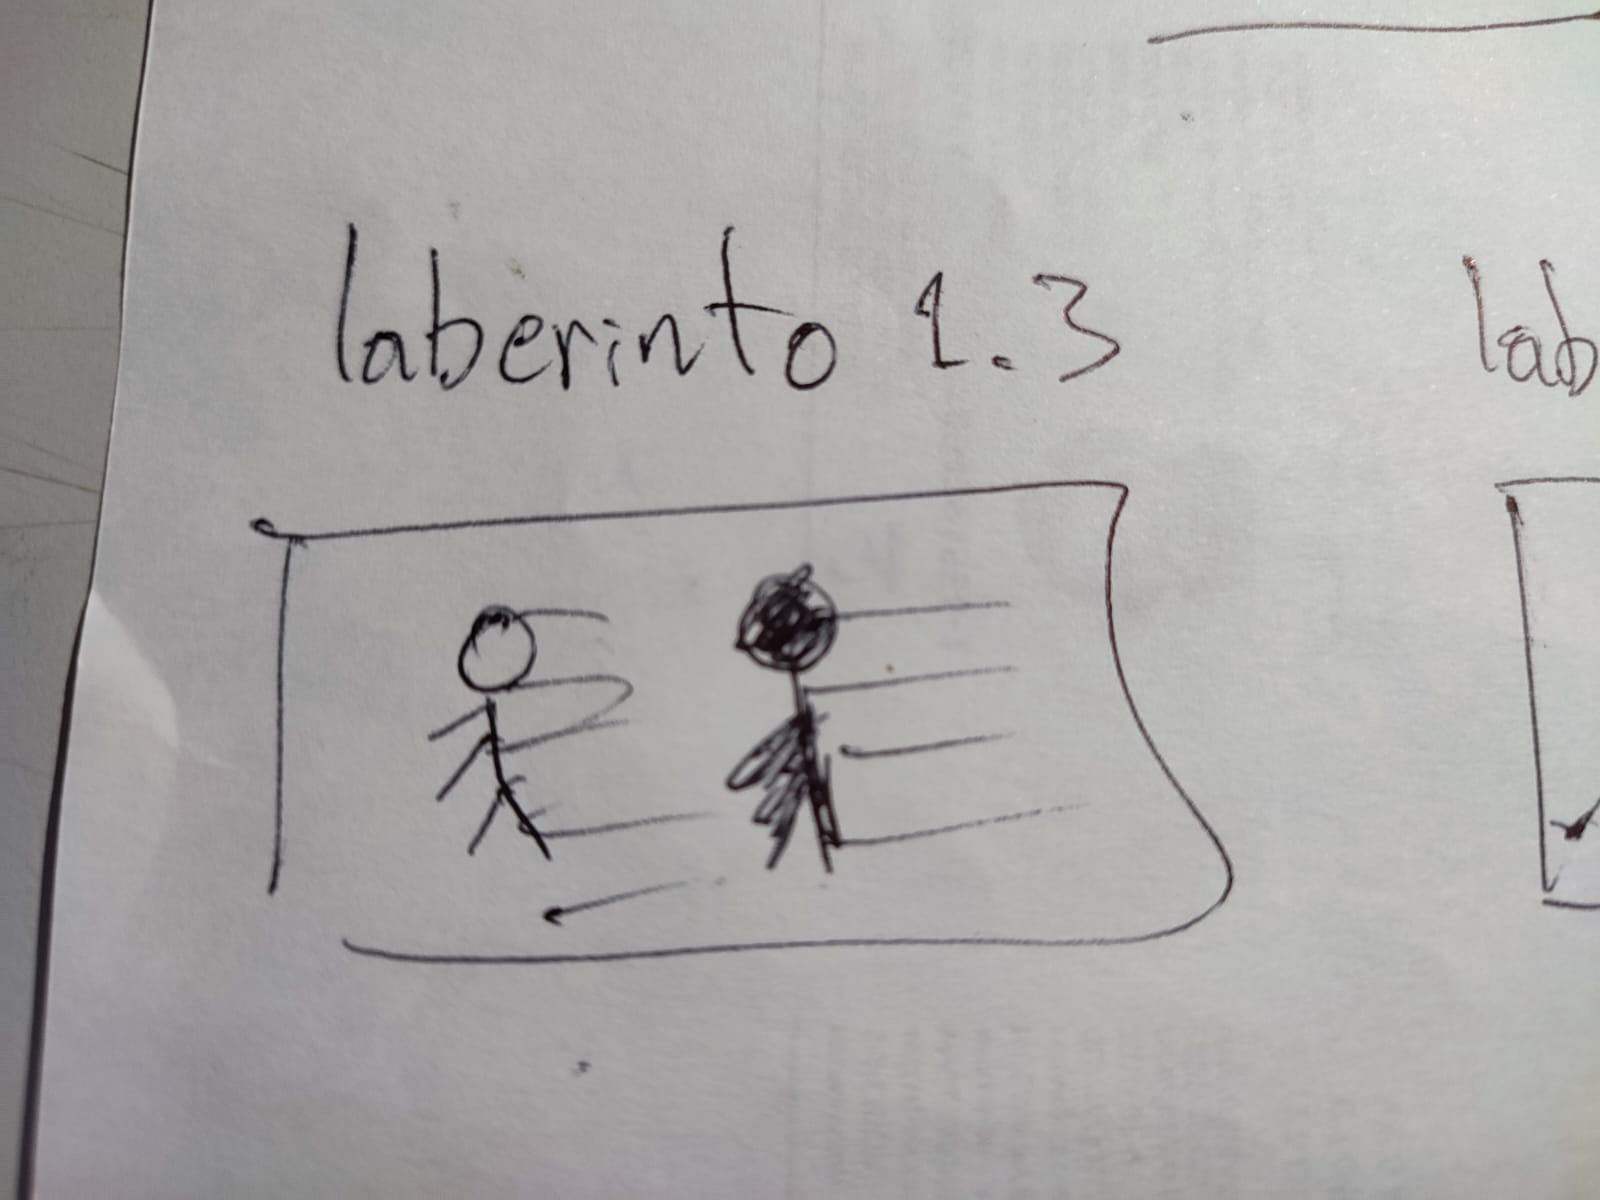 laberinto 1.3
lab